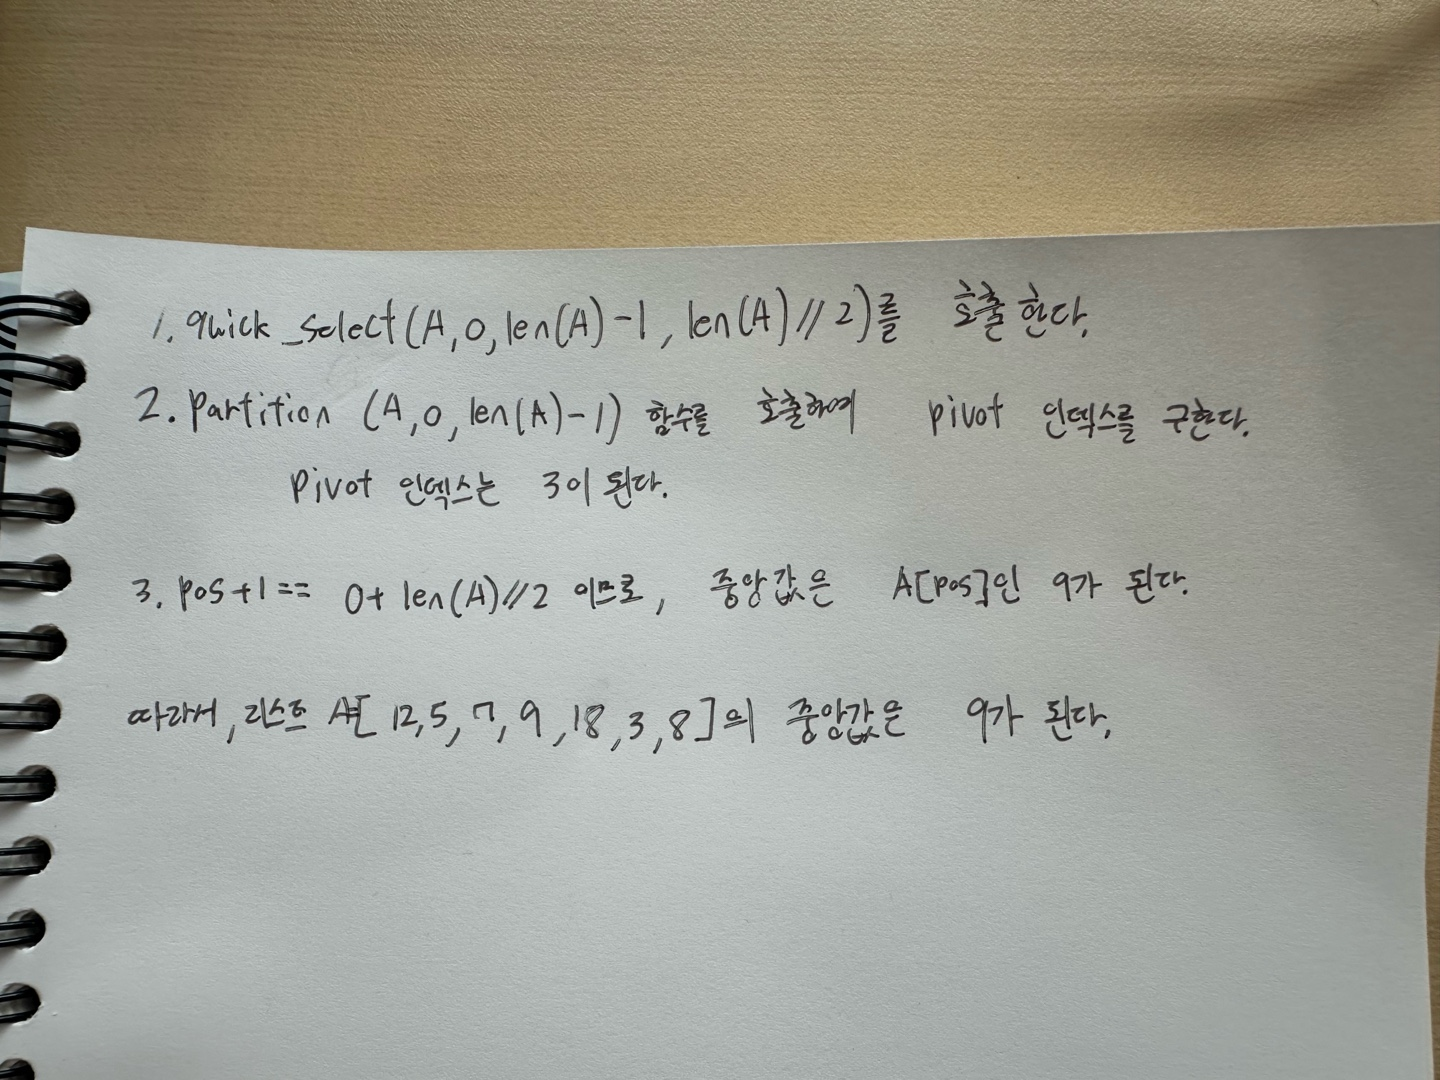 1. quick_select(A,0,len(A)-1, len(A)//2)를 호출한다.
2. Partition (A,0,len(A)-1) 함수를 호출하여 pivot 인덱스를 구한다.
pivot 인덱스는 3이 된다.
3. pos+1== 0+ len(A)//2 이므로, 중앙값은 A[pos]인 9가 된다.
따라서, 리스트 A=[12,5,7,9,18,3,8]의 중앙값은 9가 된다.